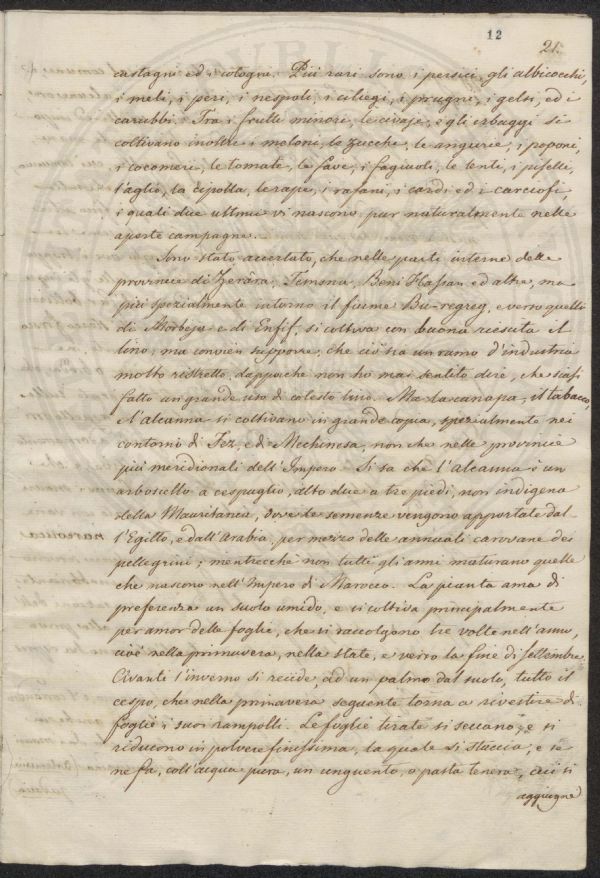 12
21.
castagni ed i cotogni. Più rari sono i persici, gli albicocchi,
i meli, i peri, i nespoli, i ciliegi, i prugni, i gelsi, ed i
carubbi. Tra i frutti minori, le civaje, e gli erbaggi si
coltivano inoltre i meloni, le zucche, le angurie, i poponi,
i cocomeri, le tomate, le fave, i fagiuoli, le lenti, i piselli,
l'aglio, la cipolla, le rape, i rafani, i cardi ed i carciofi,
i quali due ultimi vi nascono pur naturalmente nelle
aperte campagne.
Sono stato accertato, che nelle parti interne delle
provincie di Zerára, Temsna, Beni Hassan ed altre, ma
più spezialmente intorno il fiume Bu-regreg, e verso quelli
di Morbeja e di Enfif, si coltiva con buona riescita il
lino; ma convien supporre, che ciò sia un ramo d'industria
molto ristretto, dappoiche non ho mai sentito dire, che siasi
fatto un grande uso di cotesto lino. Ma la canapa, il tabacco,
e l'alcanna si coltivano in grande copia, spezialmente nei
contorni di Fez, e di Mechinesa, non che nelle provincie
più meridionali dell'Impero. Si sa che l'alcanna è un
arboscello a cespuglio, alto due a tre piedi, non indigeno
della Mauritania, dove le semenze vengono apportate dal-
l'Egitto, e dall'Arabia, per mezzo delle annuali carovane dei
pellegrini; mentrecchè non tutti gli anni maturano quelle
che nascono nell'Impero di Marocco. La pianta ama di
preferenza un suolo umido, e si coltiva principalmente
per amor delle foglie, che si raccolgono tre volte nell'anno,
cioè nella primavera, nella state, e verso la fine di settembre.
Avanti l'inverno si recide, ad un palmo dal suolo, tutto il
cespo, che nella primavera seguente torna a rivestire di
foglie i suoi rampolli. Le foglie tirate si seccano, e si
riducono in polvere finissima, la quale si staccia, e se
ne fa, coll'acqua pura, un unguento, o pasta tenera, cui si
aggiugne